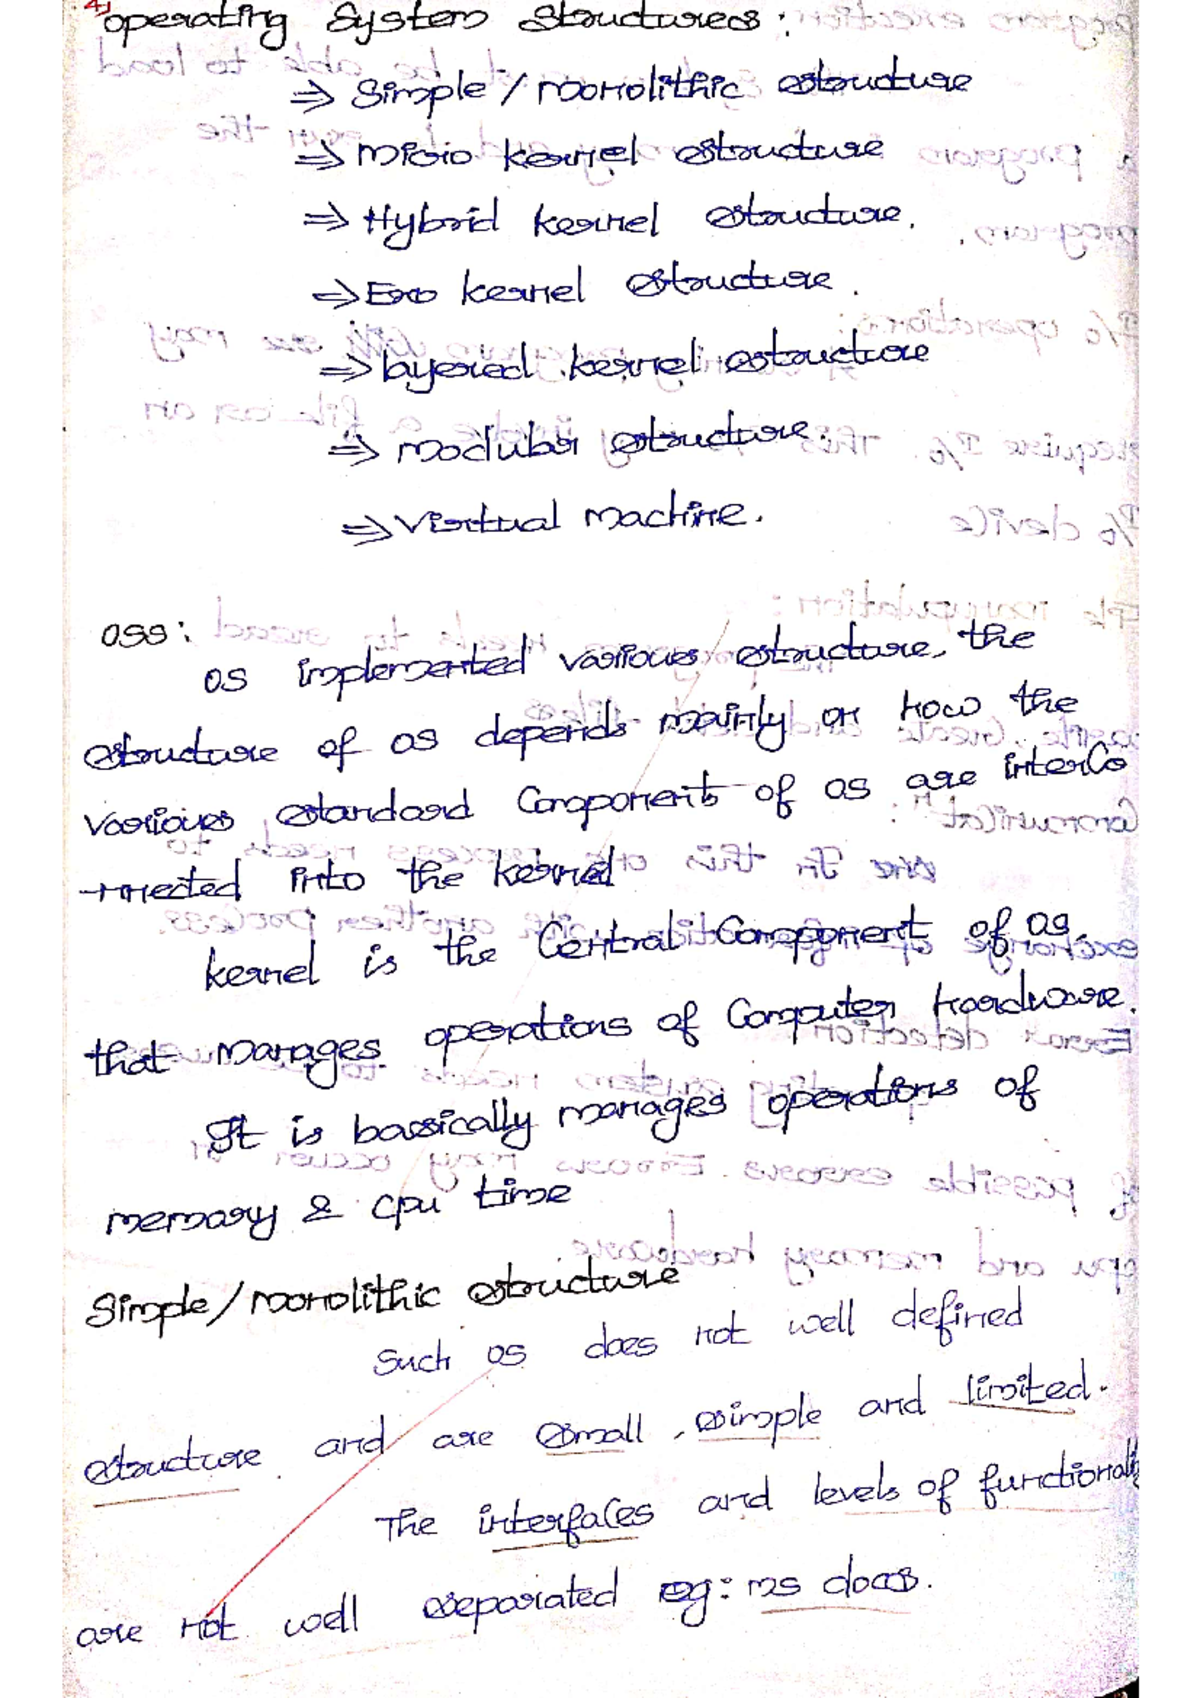 4)
operating System Structures:
⇒ Simple / monolithic structure
⇒ Micro kernel structure
⇒ Hybrid kernel structure.
⇒ Exo kernel structure.
⇒ layered kernel structure
⇒ Modular structure.
⇒ Virtual Machine.
OSS:
OS implemented various structure, the
structure of OS depends mainly on how the
various standard Component of OS are interco
-nnected into the kernel
kernel is the Central Component of OS.
that manages operations of Computer hardware.
It is bassically manages operations of
memory & CPU time
Simple / monolithic structure
Such OS does not well defined
structure and are small, simple and limited.
The interfaces and levels of functionali
are not well separated eg: MS doos.